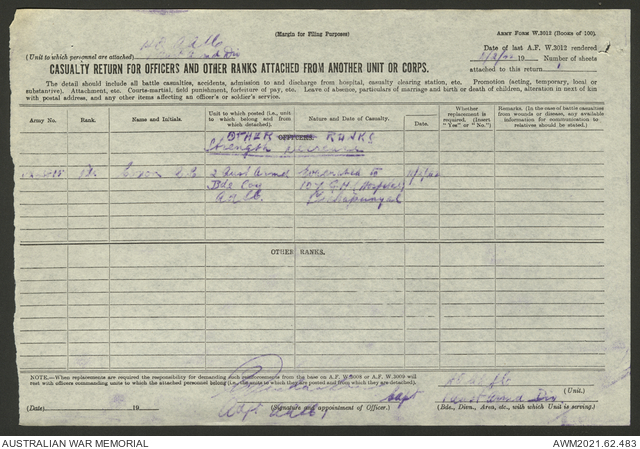 (Margin for Filing Purposes)
ARMY FORM W.3012 (BOOKS OF 100).
(Unit to which personnel are attached)
Date of last A.F. W.3012 rendered
19 Number of sheets
attached to this return 1
CASUALTY RETURN FOR OFFICERS AND OTHER RANKS ATTACHED FROM ANOTHER UNIT OR CORPS.
The detail should include all battle casualties, accidents, admission to and discharge from hospital, casualty clearing station, etc. Promotion (acting, temporary, local or
substantive). Attachment, etc. Courts-martial, field punishment, forfeiture of pay, etc. Leave of absence, particulars of marriage and birth or death of children, alteration in next of kin
with postal address, and any other items affecting an officer's or soldier's service.
Army No.
Rank.
Name and Initials.
Unit to which posted (i.e., unit to which belong and from which detached).
Nature and Date of Casualty.
Date.
Whether replacement is required. (Insert "Yes" or "No.")
Remarks. (In the case of battle casualties from wounds or disease, any available information for communication to relatives should be stated.)
OTHER OFFICERS. RANKS
Strength
Pte
2 Aust Armd Evacuated to
Bde Coy (Hospital)
OTHER RANKS.
NOTE.—When replacements are required the responsibility for demanding such reinforcements from the base on A.F. W.3008 or A.F. W.3009 will
rest with officers commanding units to which the attached personnel belong (i.e., the units to which they are posted and from which they are detached).
Capt
Adjt
(Unit.)
Aust Armd Div
(Date) 19
(Signature and appointment of Officer.)
(Bde., Divn., Area, etc., with which Unit is serving.)
AUSTRALIAN WAR MEMORIAL
AWM2021.62.483